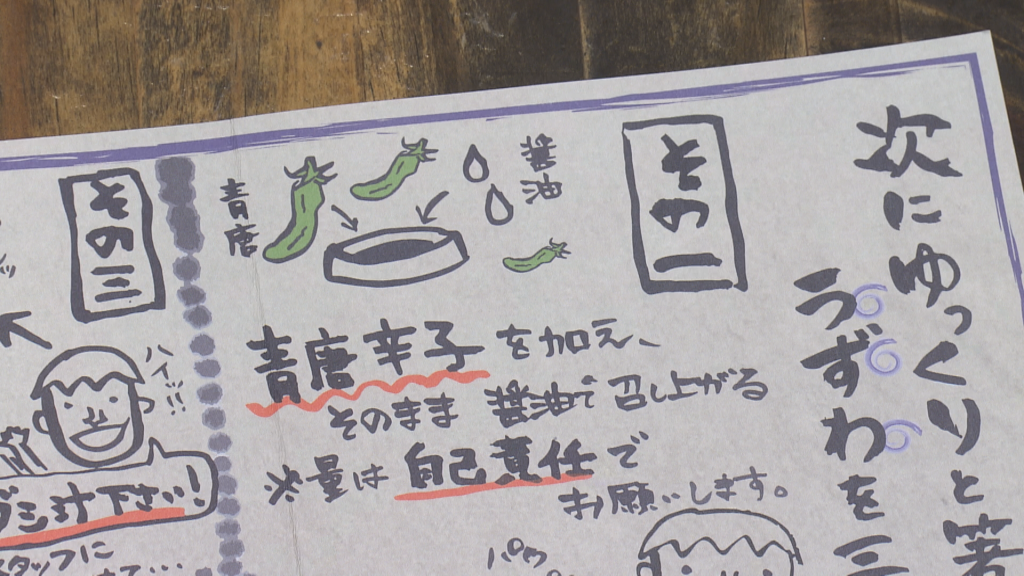 次にゆっくりと箸
うずわを三
その一
醤油
青唐
青唐辛子を加え、
そのまま 醤油で召し上がる
※量は自己責任で
お願いします。
パウ
その三
ハイッ!!
ダシ汁下さい!
スタッフに